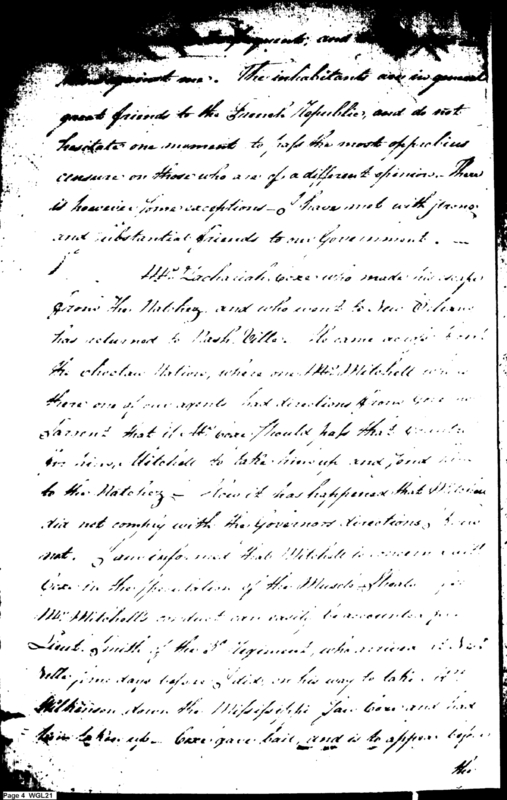 and
against me. The inhabitants are in general
great friends to the French Republic, and do not
hesitate one moment to pass the most opprobius
censure on those who are of a different opinion. There
is however some exceptions - I have met with strong
and substantial friends to our Government. -
Mr. Zachariah Coxe who made his escape
from the Natchez and who went to New Orleans
has returned to Nash Ville. He came across from
the Choctaw Nation, where one Mr. Mitchell who is
there one of our agents had directions from
Sarsent that if Mr. Coxe should pass that Country
for him, Mitchell to take him up and send him
to the Natchez - How it has happened that Mitchell
did not comply with the Governors directions I know
not. I am informed that Mitchell is concern'd with
Coxe in the Speculation of the Muscle Shoals
Mr. Mitchell's conduct can easily be accounted for
Lieut. Smith of the 3d. Regiment, who arrived at Nash
Ville some days before I did, on his way to take
Wilkinson down the Mississippi saw Coxe and had
him taken up - Coxe gave bail, and is to appear before
the
Page 4 WGL21